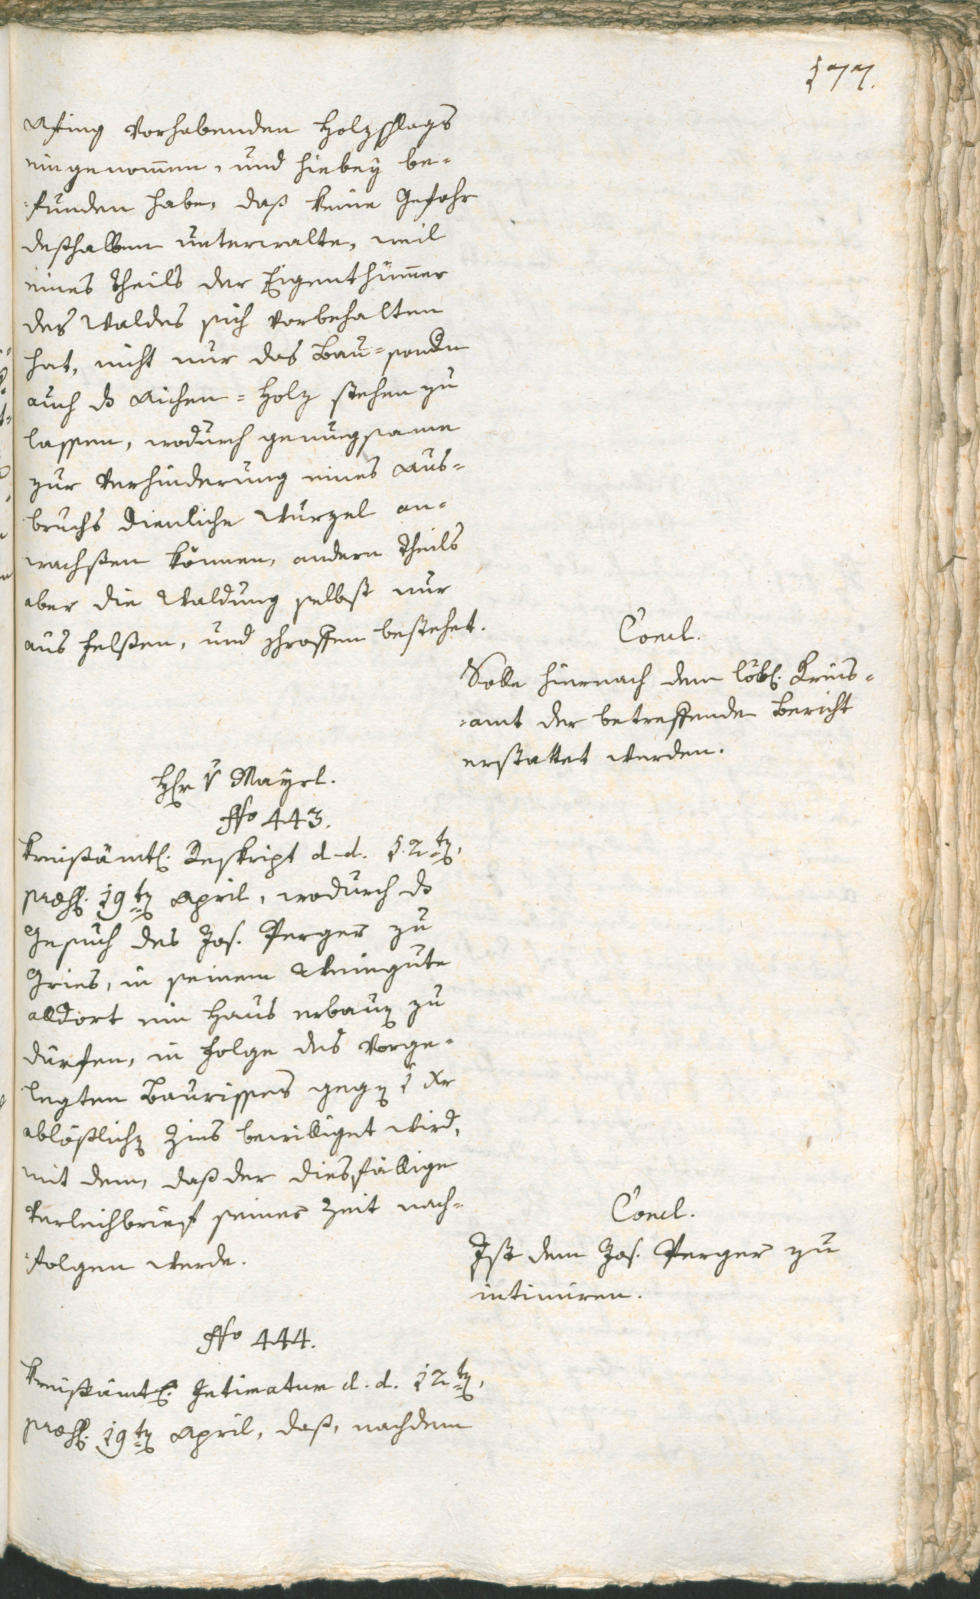 177.
Afing vorhabenden Holzschlags
eingenommen, und hiebey be-
funden habe, daß keine Gefahr
deßhalben unterwalte, weil
eines Theils der Eigenthümmer
des Waldes sich vorbehalten
hat, nicht nur das Bau- sondern
auch das Aichen-Holz stehen zu
lassen, wodurch genugsame
zur Verhinderung eines Aus-
bruchs dienliche Wurzel an-
wachsßen können, andern Theils
aber die Waldung selbst nur
aus Felßen, und Schroffen bestehet.
Concl.
Solle hiernach dem löbl. Kreis-
amt der betreffende Bericht
erstattet werden.
Hr v Mayrl.
No 443.
Kreißämtl. Reskript d. d. 12ten,
præs. 19ten April, wodurch das
Gesuch des Jos. Perger zu
Gries, in seinem Weingute
alldort ein Haus erbauen zu
dürfen, in Folge des vorge-
legten Baurisses gegen 1 xr
ablößlichen Zins bewilliget wird,
mit dem, daß der diesfällige
Verleihbrief seiner Zeit nach-
folgen werde.
Concl.
Ist dem Jos. Perger zu
intimiren.
No 444.
Kreißämtl. Intimatum d. d. 12ten,
præs. 19ten April, daß, nachdem